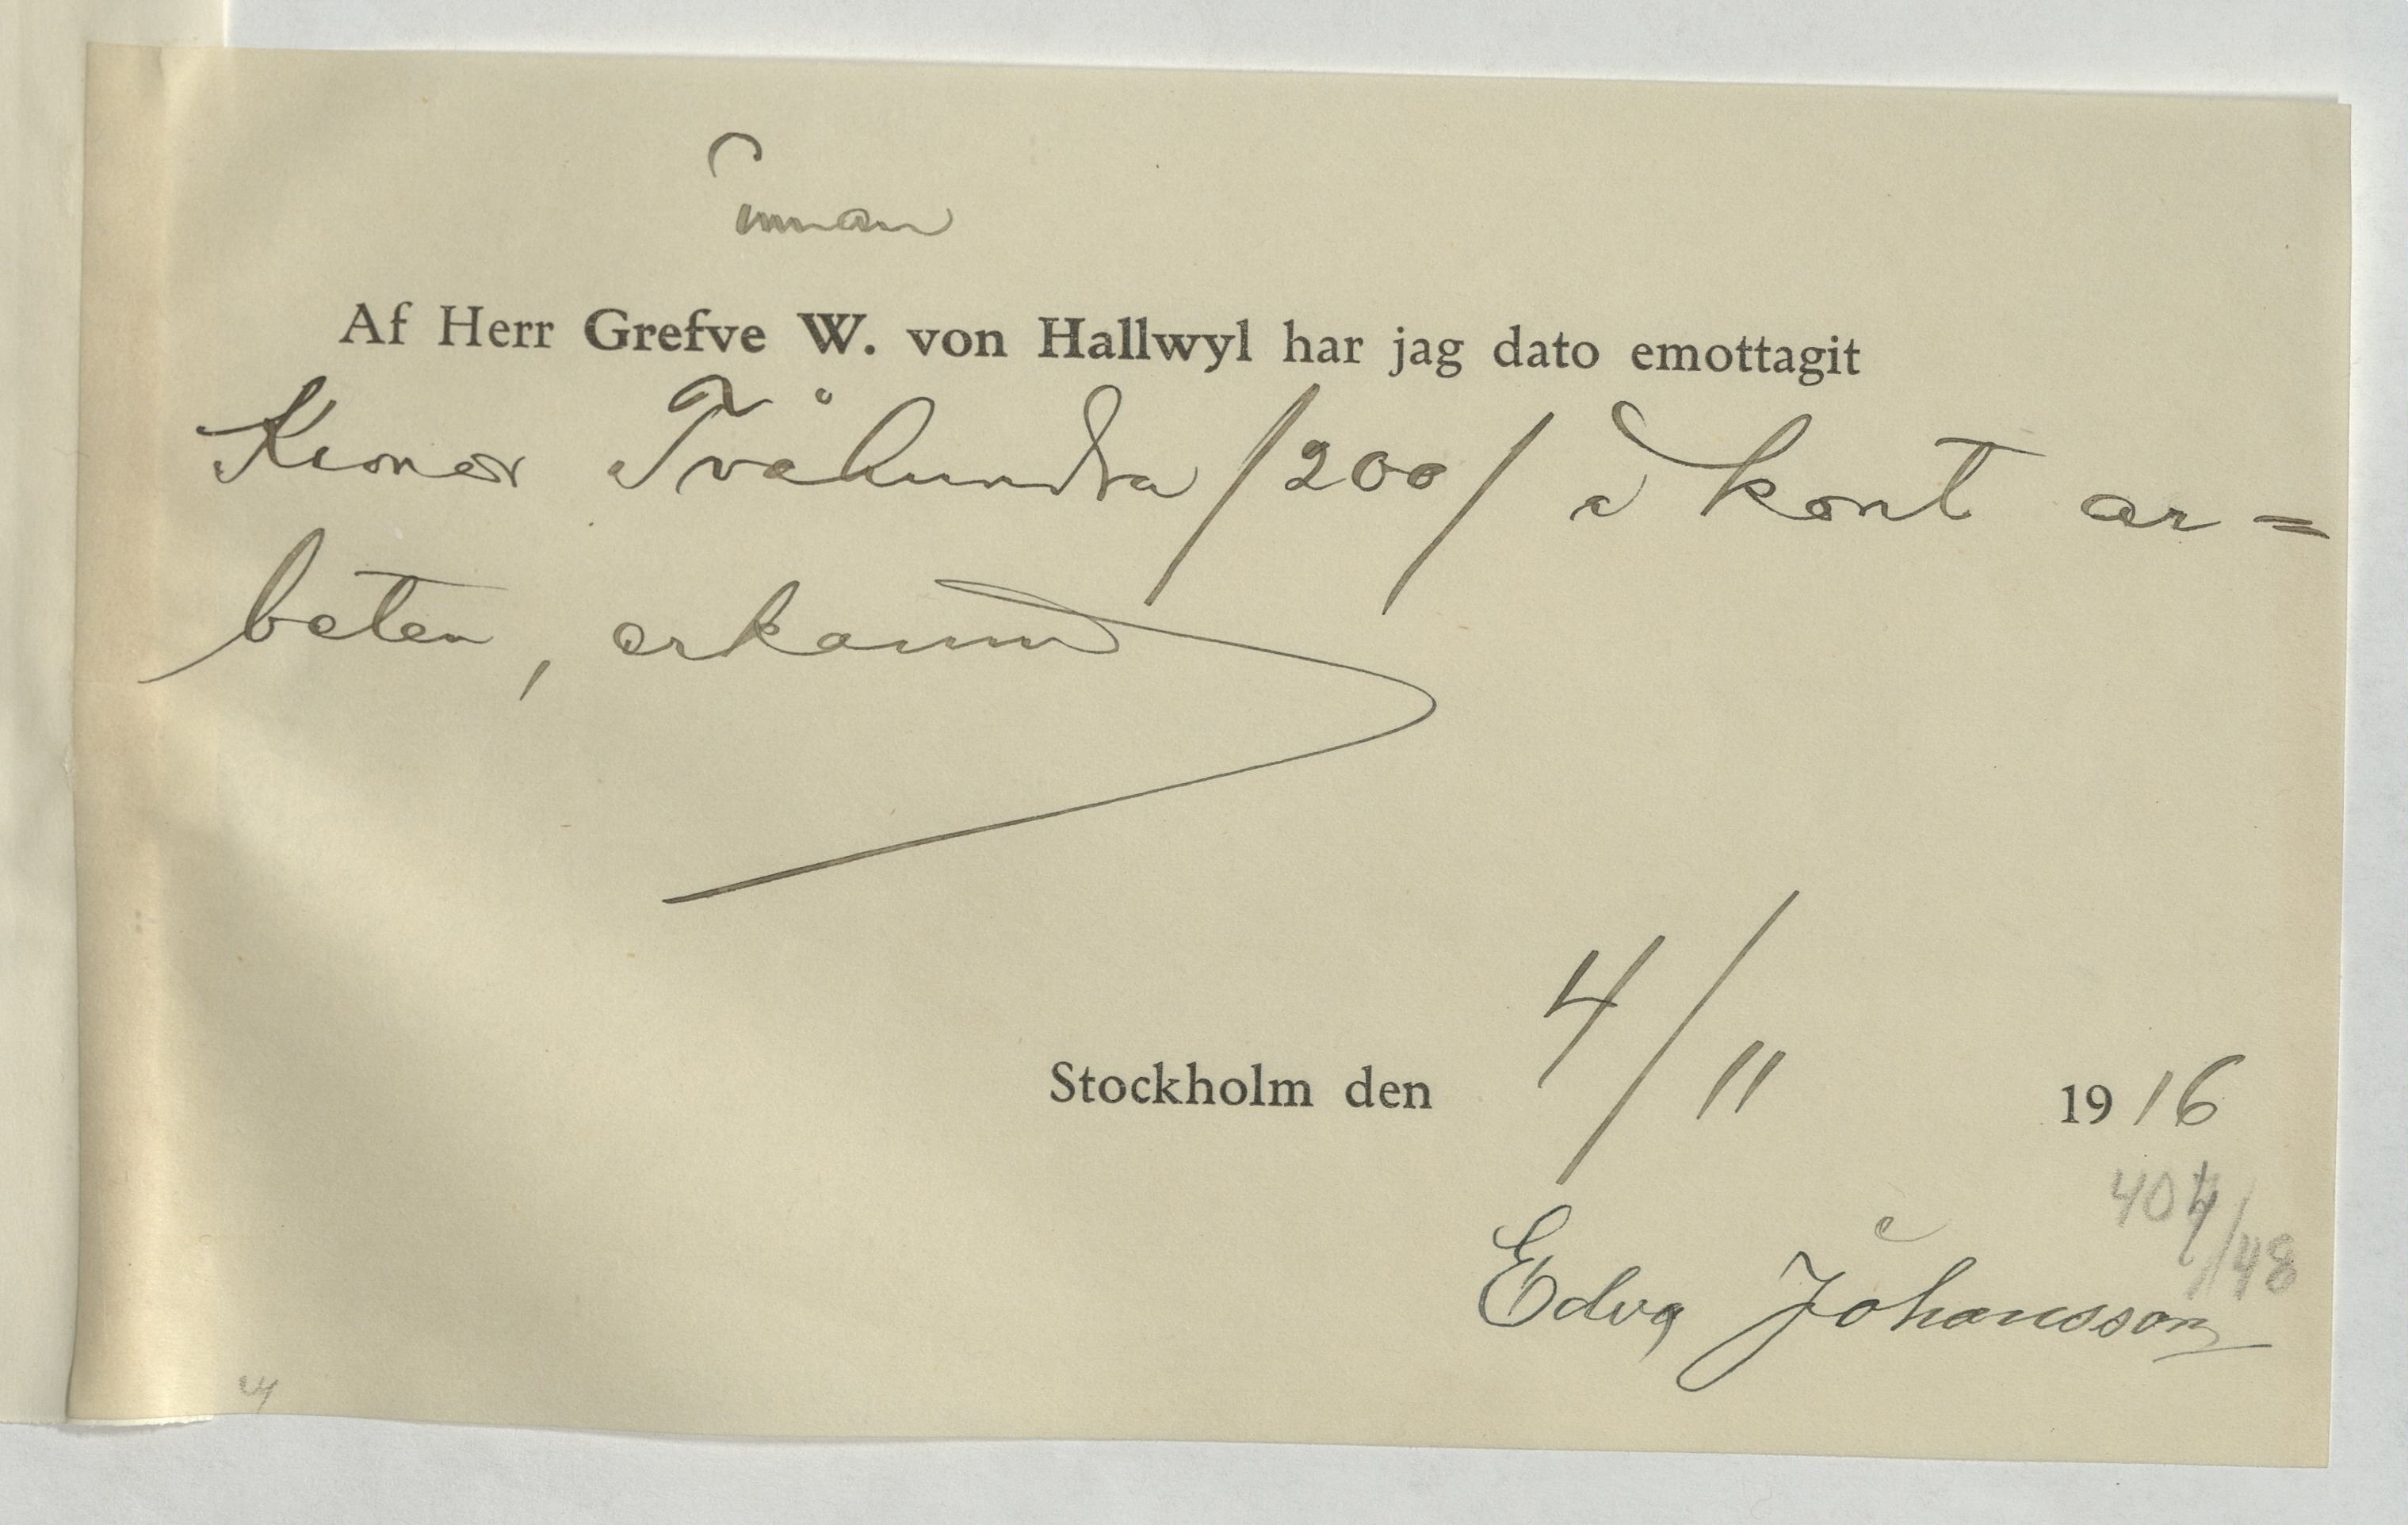 innan
Af Herr Grefve W. von Hallwyl har jag dato emottagit
Kronor Tvåhundra /200/ à kont ar=
beten, erkännes
Stockholm den 4/11 1916
404/48
Edvg Johansson